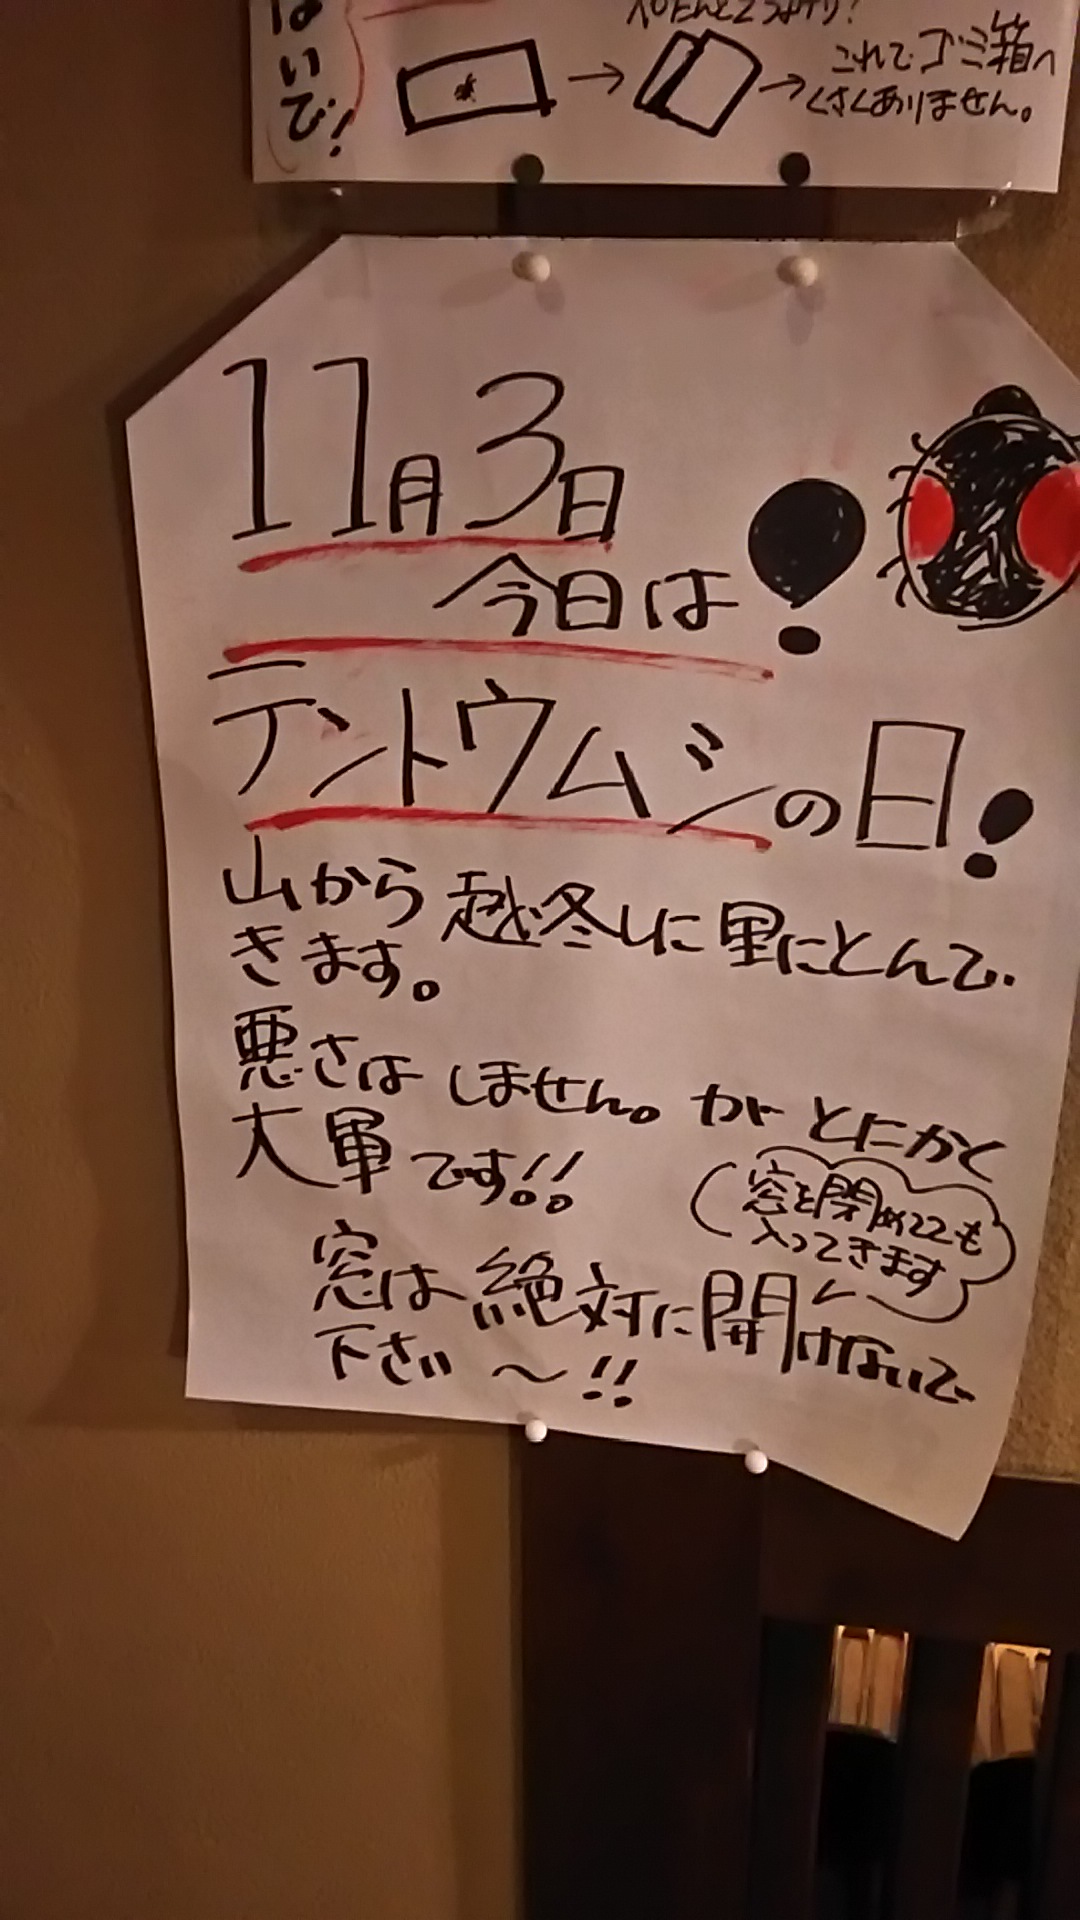 ないで!
これでゴミ箱へ
くさくありません。
11月3日
今日は!
テントウムシの日!
山から越冬しに里にとんで
きます。
悪さはしません。がとにかく
大軍です!!
(窓を閉めててても
入ってきます
窓は絶対に開けないで
下さい〜!!